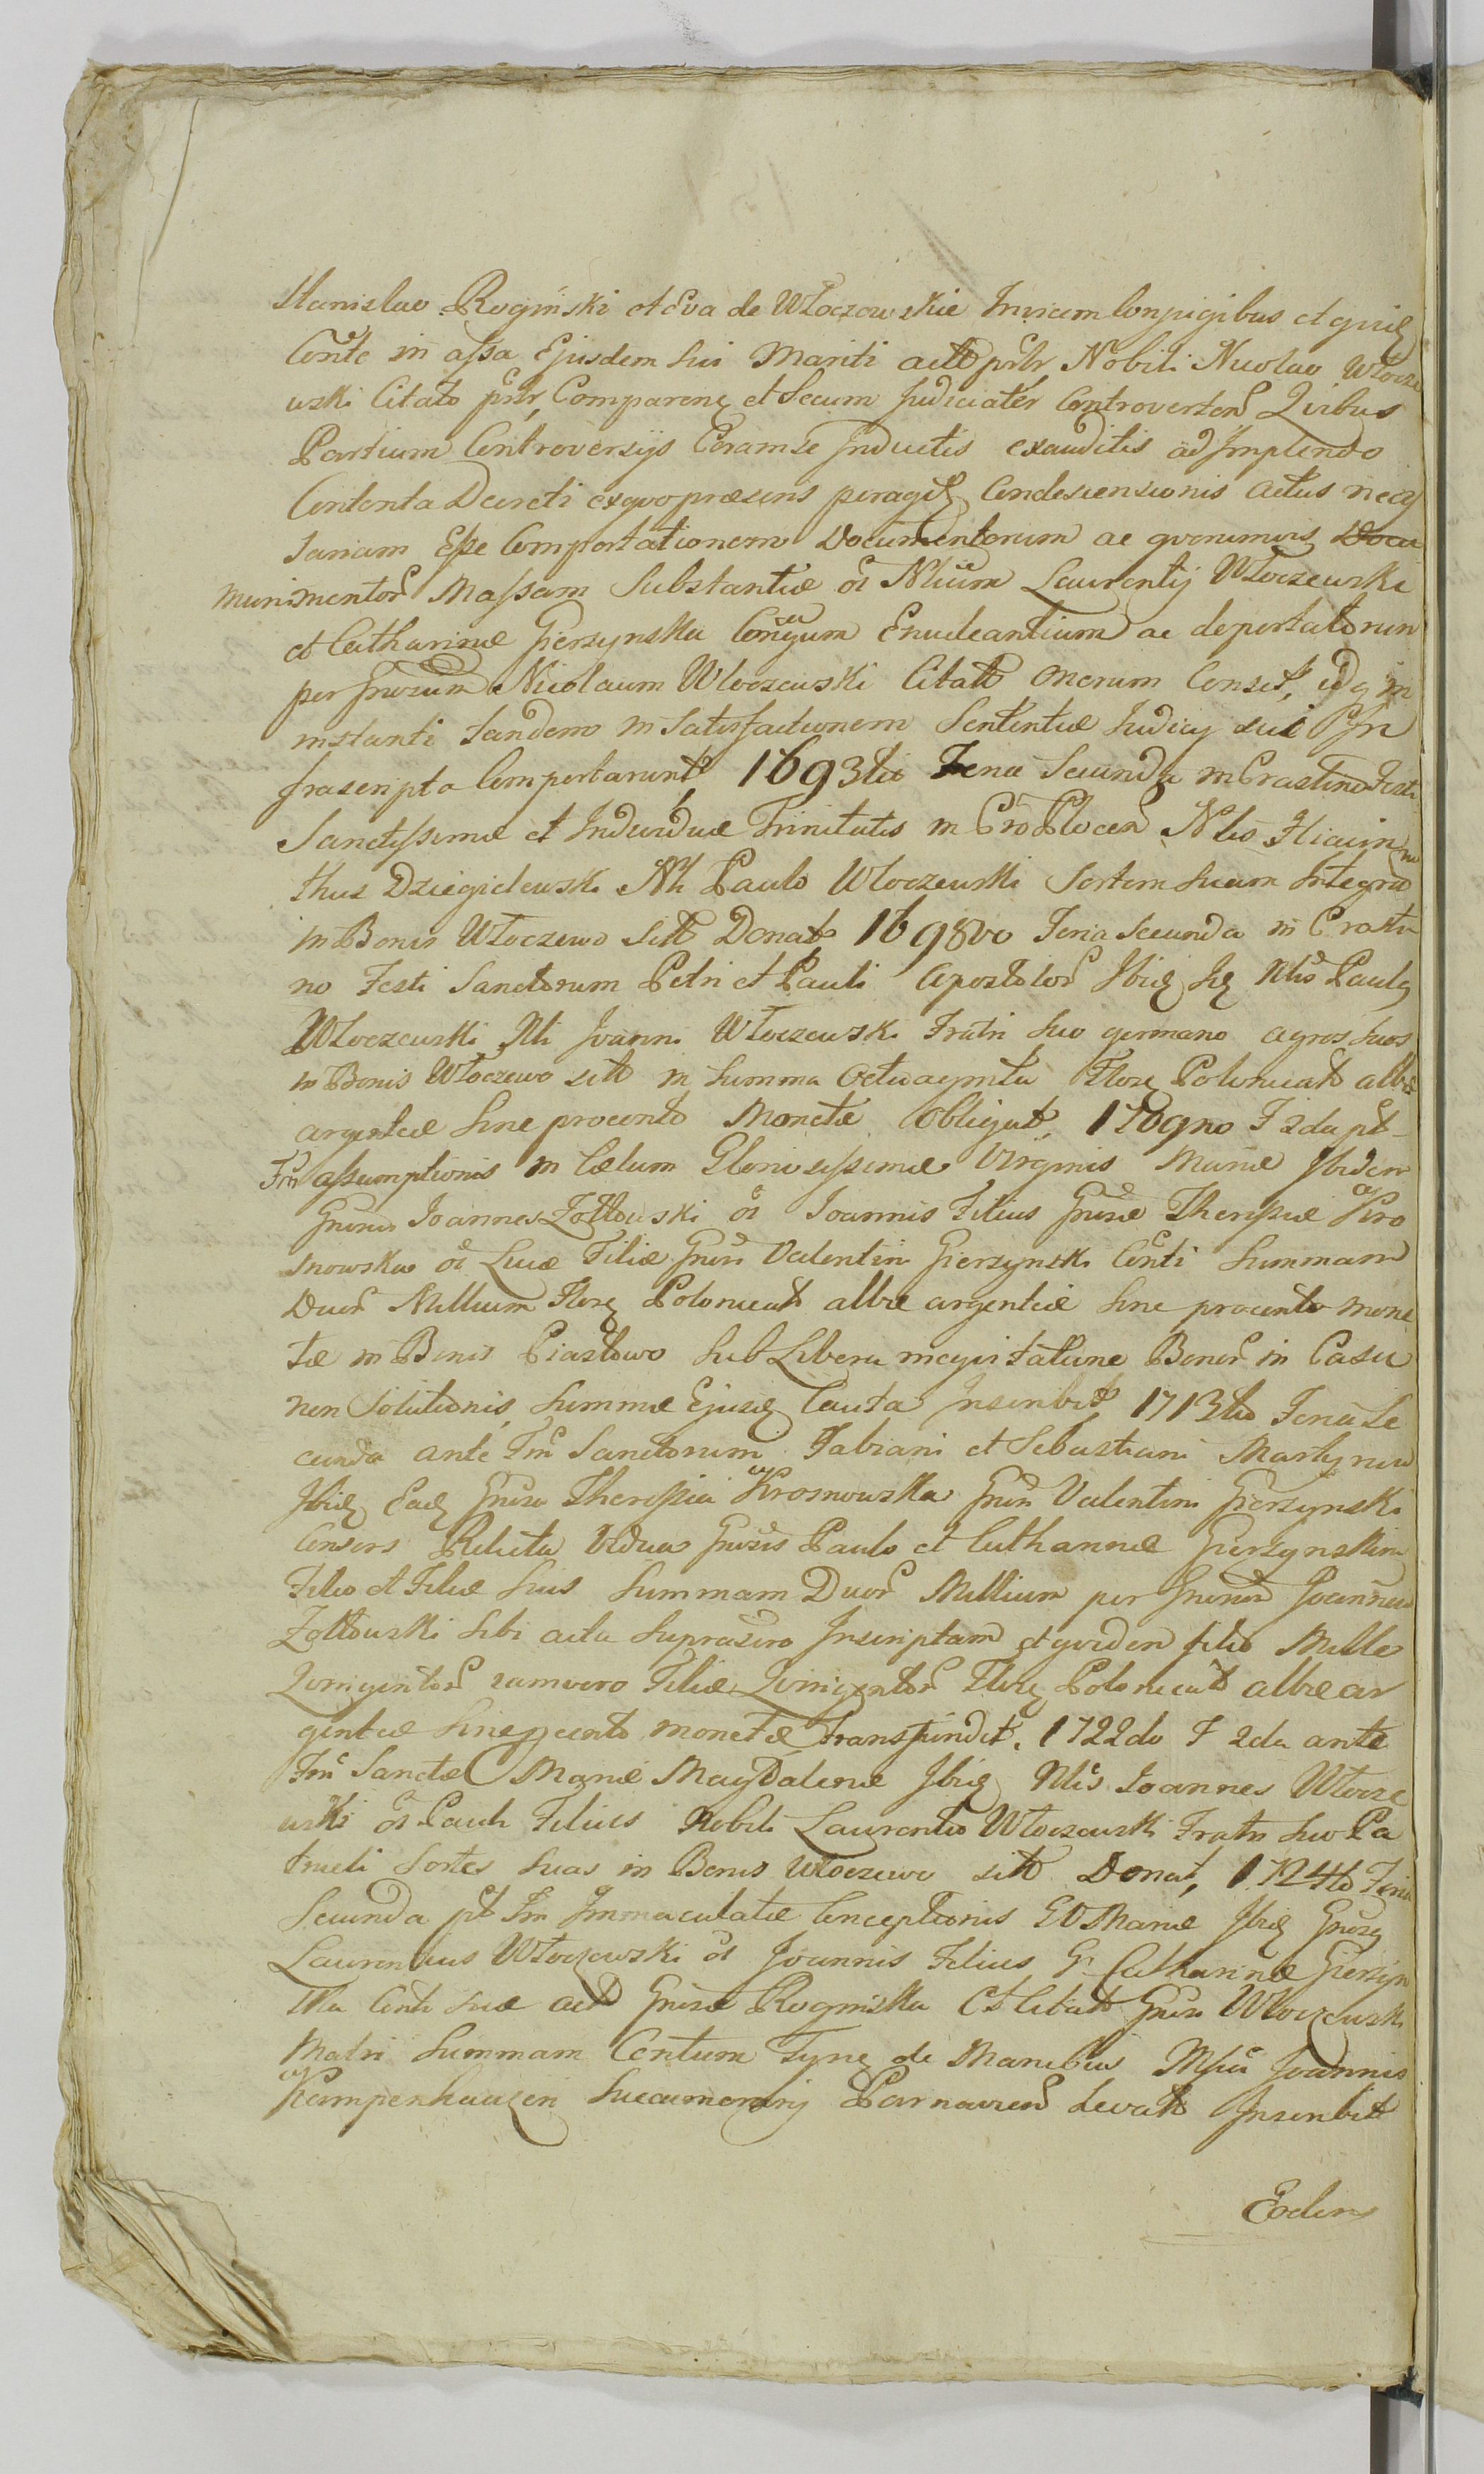 Stanislao Roginski et Eva de Włoczowskie Invicem Conjugibus et
Conte in assa Ejusdem Sui Mariti actt Nobili Nicolao Włocze
wski Citato Comparen et Secum Judicialer Controverten Quibus
Partium Controversijs Coram se Inductis exauditis ad Implendo
Contenta Decreti exquo præsens peragit Condescensionis Actus necs
sariam Esse Comportationem Documentorum ac quorumvis Docu
munimentor Massam Substantiæ oi Nlium Laurentij Włoczewski
et Catharinæ Gierzynska Conjgum Enucleantium ac deportatorum
per Gnrosum Nicolaum Wloczewski Citatt onerum Conset, idq in
instanti tandem in Satisfactionem Sententiæ Judicij sui In
frascripta Comportarunt 1693tio Feria Secunda in Crastino Festi
Sanctissimæ et Individuæ Trinitatis in Plocen Nlis Hiacin
thus Dziegielewski Nli Paulo Wloczewski Sortem Suam Integra
in Bonis Włoczewo Sitt Donat 1698vo Feria Secunda in Crasti
no Festi Sanctorum Petri et Pauli Apostolor Ibid Nlis Paulq
Wloczewski Nli Joanni Włoczewski Fratri Suo germano agros Suos
in Bonis Włoczewo sitt in Summa Octuaginta Flor Polonicat albæ
argenteæ Sine procento Monetæ Obligat, 1709no F 2da pt
Fm assumptionis in Cælum Gloriosissimæ Virginis Mariæ Ibidem
Gnrosus Joannes Zołtowski oi Joannis Filius Gnrosæ Theressiæ Kro
snowska oi Lucæ Filiæ Gnrosi Valentini Gierzynski Conti Summam
Duor Millium Flor Polonicat albæ argenteæ Sine procento mone
tæ in Bonis Piastowo Sub Libera Bonor in Casu
non Solutionis Summæ Ejusd Cauta Inscribit 1713tio Feria Se
cunda ante Fm Sanctorum Fabiani et Sebastiani Martyrum
Ibid Ead Gnrosa Theressia Krosnowska Gnrosi Valentini Gierzynski
Consors Relicta Vidua Gnrosis Paulo et Catharinæ Gierzynskim
Filio et Filiæ Suis Summam Duor Millium per Gnrosum Joannem
Zołtowski Sibi acta Suprascro Inscriptam et quidem filio Mille
Quingentor iamvero Filiæ Quingentor Flor Polonicat albæ ar
genteæ Sine pcento monetæ transfundit. 1722do F 2da ante
Fm Sanctæ Mariæ Magdalenæ Ibid Nlis Joannes Włocze
wski oi Pauli Filius Nobili Laurentio Włoczewski Fratri Suo Pa
trueli Sortes Suas in Bonis Włoczewo sitt Donat, 1724to Feria
Secunda pt Fm Immaculatæ Conceptionis BV Mariæ Ibid Gnrosq
Laurentius Włoczewski oi Joannis Filius G Catharinæ Gierzyn
ska Conti suæ actt Gnrosæ Roginska Et Citatt Gnrosi Wloczewski
Matri Summam Centum Tynf de Manibus Joannis
Kampenhauzen Succamerarij Parnavien levatt Inscribit
Eodem